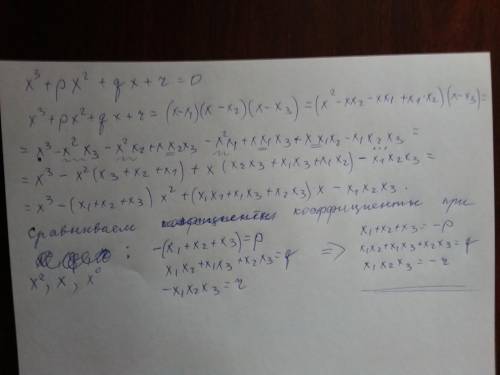 x³ + px² + qx + r = 0
x³ + px² + qx + r = (x-x₁)(x-x₂)(x-x₃) = (x² - xx₂ - xx₁ + x₁·x₂)(x-x₃) =
= x³ - x²x₃ - x²x₂ + xx₂x₃ - x²x₁ + xx₁x₃ + xx₁x₂ - x₁x₂x₃ =
= x³ - x²(x₃ + x₂ + x₁) + x(x₂x₃ + x₁x₃ + x₁x₂) - x₁x₂x₃ =
= x³ - (x₁+x₂+x₃)x² + (x₁x₂+x₁x₃+x₂x₃)x - x₁x₂x₃.
Сравниваем коэффициенты при
x², x, x⁰ :
-(x₁+x₂+x₃) = p
x₁x₂+x₁x₃+x₂x₃ = q
-x₁x₂x₃ = r
=>
x₁+x₂+x₃ = -p
x₁x₂+x₁x₃+x₂x₃ = q
x₁x₂x₃ = -r